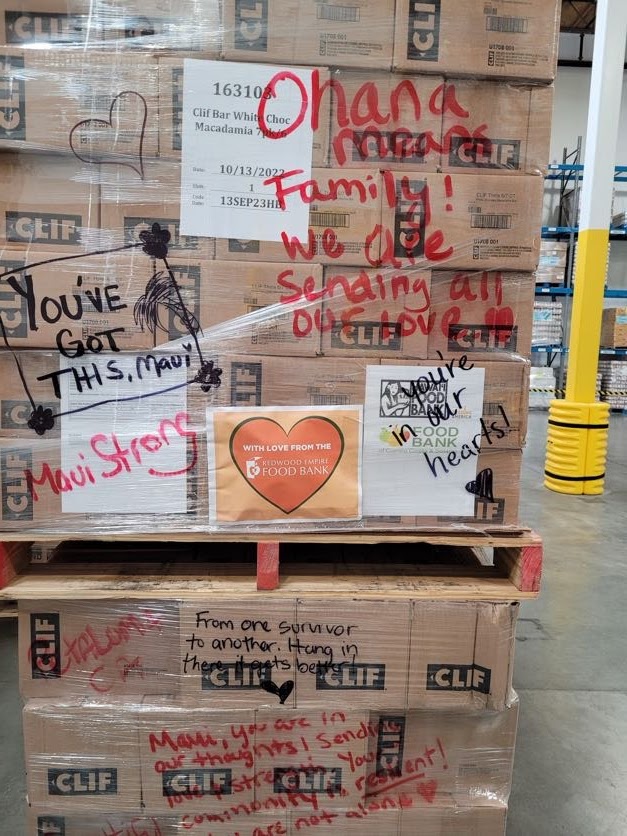 CLIF
CLIF
163103
Clif Bar White Choc
Macadamia 7pk/6
Date: 10/13/2022
1
Code Date: 13SEP23HE
Ohana
means
Family!
We are
Sending all
our love!!!
CLIF
CLIF
CLIF
CLIF
CLIF
CLIF
YOU'VE
GOT
THIS, Maui
Maui Strong
WITH LOVE FROM THE
REDWOOD EMPIRE
FOOD BANK
HAWAI'I
FOOD
BANK
FOOD
BANK
you're
in our
hearts!
CLIF
From one survivor
to another. Hang in
there it gets better!
CLIF
CLIF
CLIF
Maui, you are in
our thoughts! Sending
love & strength. Your
community is resilient!
are not alone
CLIF
CLIF
CLIF
CLIF